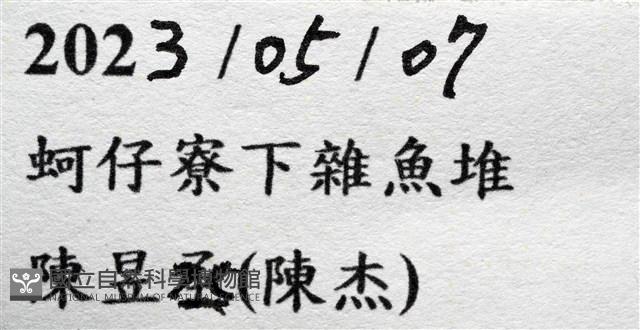 2023/05/07
蚵仔寮下雜魚堆
陳昱丞(陳杰)
國立自然科學博物館
NATIONAL MUSEUM OF NATURAL SCIENCE